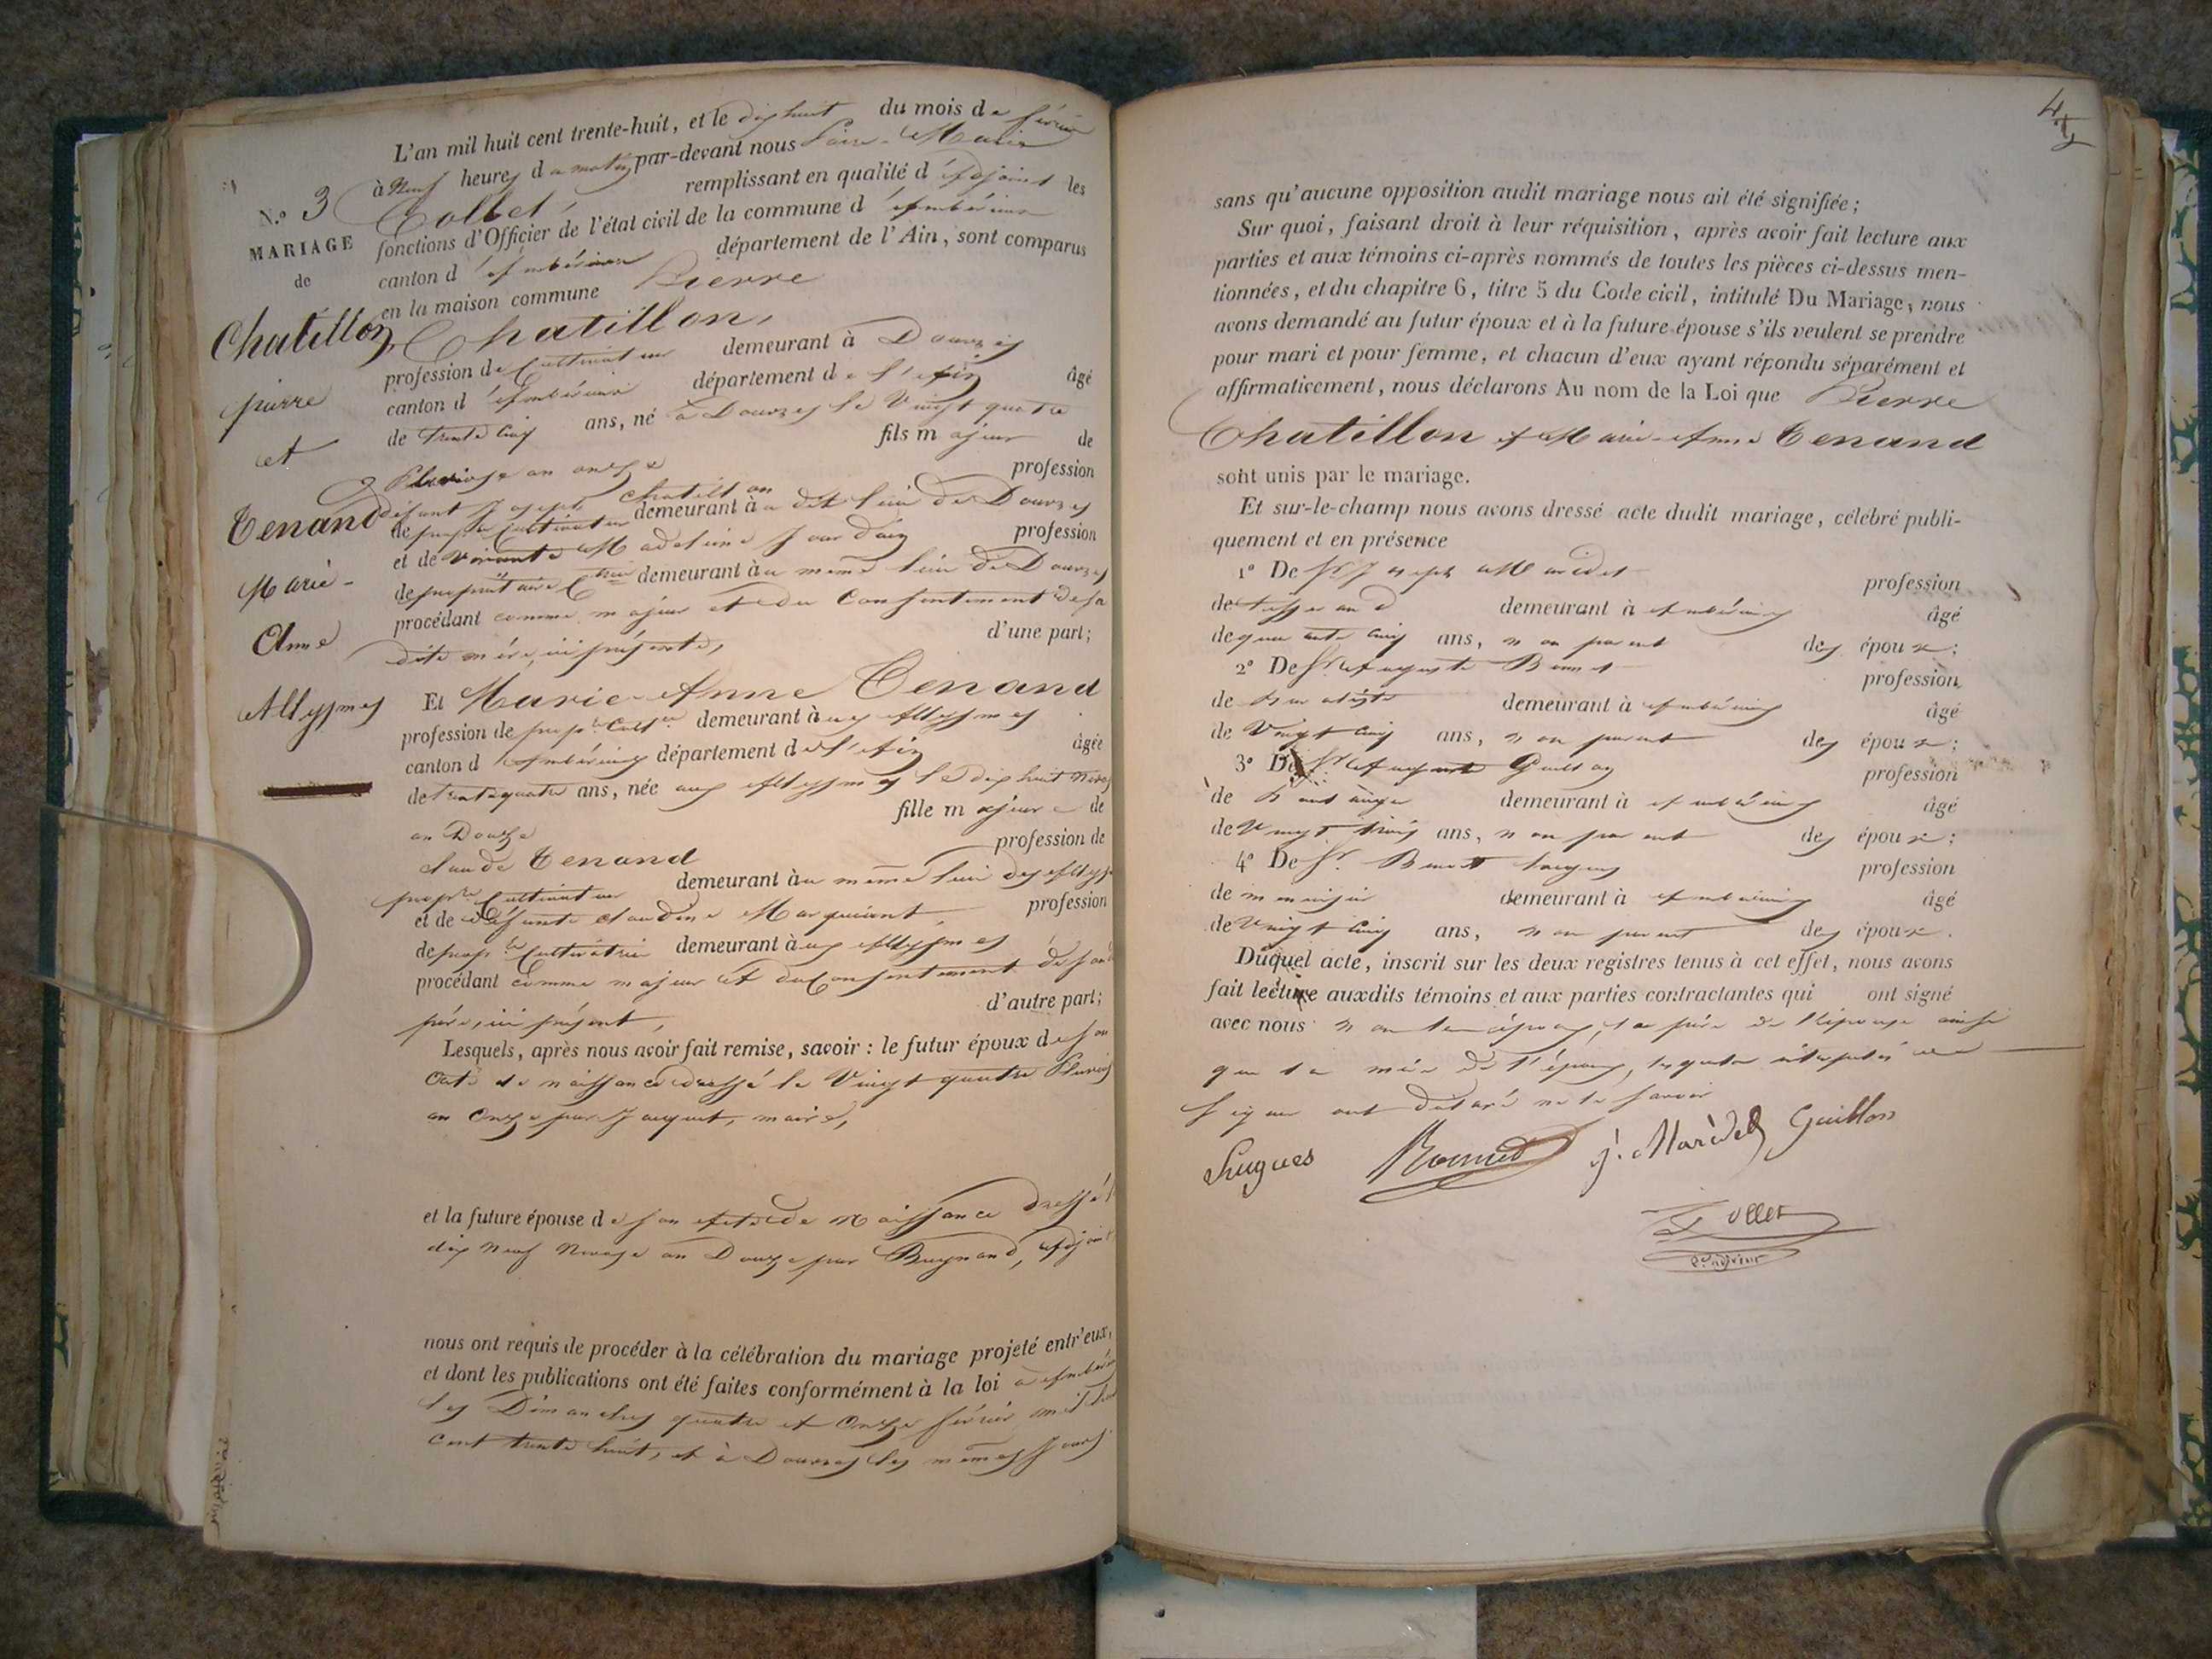 N.º 3
MARIAGE
de
Chatillon
pierre
et
Tenand
Marie-
Anne
Allyymes
L'an mil huit cent trente-huit, et le dix huit du mois de février
à Neuf heures du matin par-devant nous Marie
Tollet remplissant en qualité d'adjoint les
fonctions d'Officier de l'état civil de la commune d'ambérieux
canton d'ambérieux département de l'Ain, sont comparus
en la maison commune Pierre
Chatillon,
profession de Cultivateur demeurant à Douvres
canton d'ambérieux département de l'Ain âgé
de trente cinq ans, né à Douvres le Vingt quatre
Pluviose an onze fils majeur de
défunt Joseph Chatillon profession
de propre Cultivateur demeurant à au dit lieu de Douvres
et de vivante Madelaine Jourdain profession
de propriétaire demeurant à au même lieu de Douvres
procédant comme majeur et du Consentement de sa
dite mère, ici présente, d'une part;
Et Marie-Anne Tenand
profession de demeurant à aux Allyymes
canton d'ambérieux département de l'Ain âgée
de trente quatre ans, née aux Allyymes le dix huit nivos
an Douze fille majeure de
claude Tenand profession de
propre Cultivateur demeurant à au même lieu des Allyy
et de défunte claudine Marguerent profession
de Cultivatrice demeurant à aux Allyymes
procédant comme majeur et du Consentement de son
père, ici présent, d'autre part;
Lesquels, après nous avoir fait remise, savoir: le futur époux de son
acte de naissance dressé le Vingt quatre Pluvios
an Onze par Jauquet, maire,
et la future épouse de son acte de Naissance dressé l
dix Neuf Nivose an Douze par Buynand, adjoint
nous ont requis de procéder à la célébration du mariage projeté entr'eux,
et dont les publications ont été faites conformément à la loi à ambér
les Dimanches quatre et Onze février mil huit
cent trente huit, et à Douvres les mêmes Jours
sans qu'aucune opposition audit mariage nous ait été signifiée;
Sur quoi, faisant droit à leur réquisition, après avoir fait lecture aux
parties et aux témoins ci-après nommés de toutes les pièces ci-dessus men-
tionnées, et du chapitre 6, titre 5 du Code civil, intitulé Du Mariage, nous
avons demandé au futur époux et à la future épouse s'ils veulent se prendre
pour mari et pour femme, et chacun d'eux ayant répondu séparément et
affirmativement, nous déclarons Au nom de la Loi que Pierre
Chatillon et Marie-Anne Tenand
sont unis par le mariage.
Et sur-le-champ nous avons dressé acte dudit mariage, célébré publi-
quement et en présence
1º De Sr Joseph Maridet profession
de tisserand demeurant à ambérieux âgé
de quarante cinq ans, non parent des époux;
2º De Sr Auguste Bonnet profession
de demeurant à ambérieux âgé
de Vingt cinq ans, non parent des époux;
3º De Sr Auguste Guillon profession
de Boulanger demeurant à ambérieux âgé
de Vingt trois ans, non parent des époux;
4º De Sr. Benoit hugues profession
de menuisier demeurant à ambérieux âgé
de Vingt cinq ans, non parent des époux.
Duquel acte, inscrit sur les deux registres tenus à cet effet, nous avons
fait lecture auxdits témoins et aux parties contractantes qui ont signé
avec nous non les époux, le père de l'épouse ainsi
que la mère de l'époux, lesquels interpelés de
signer ont déclaré ne le savoir
hugues Bonnet j. Maridet Guillon
Tollet